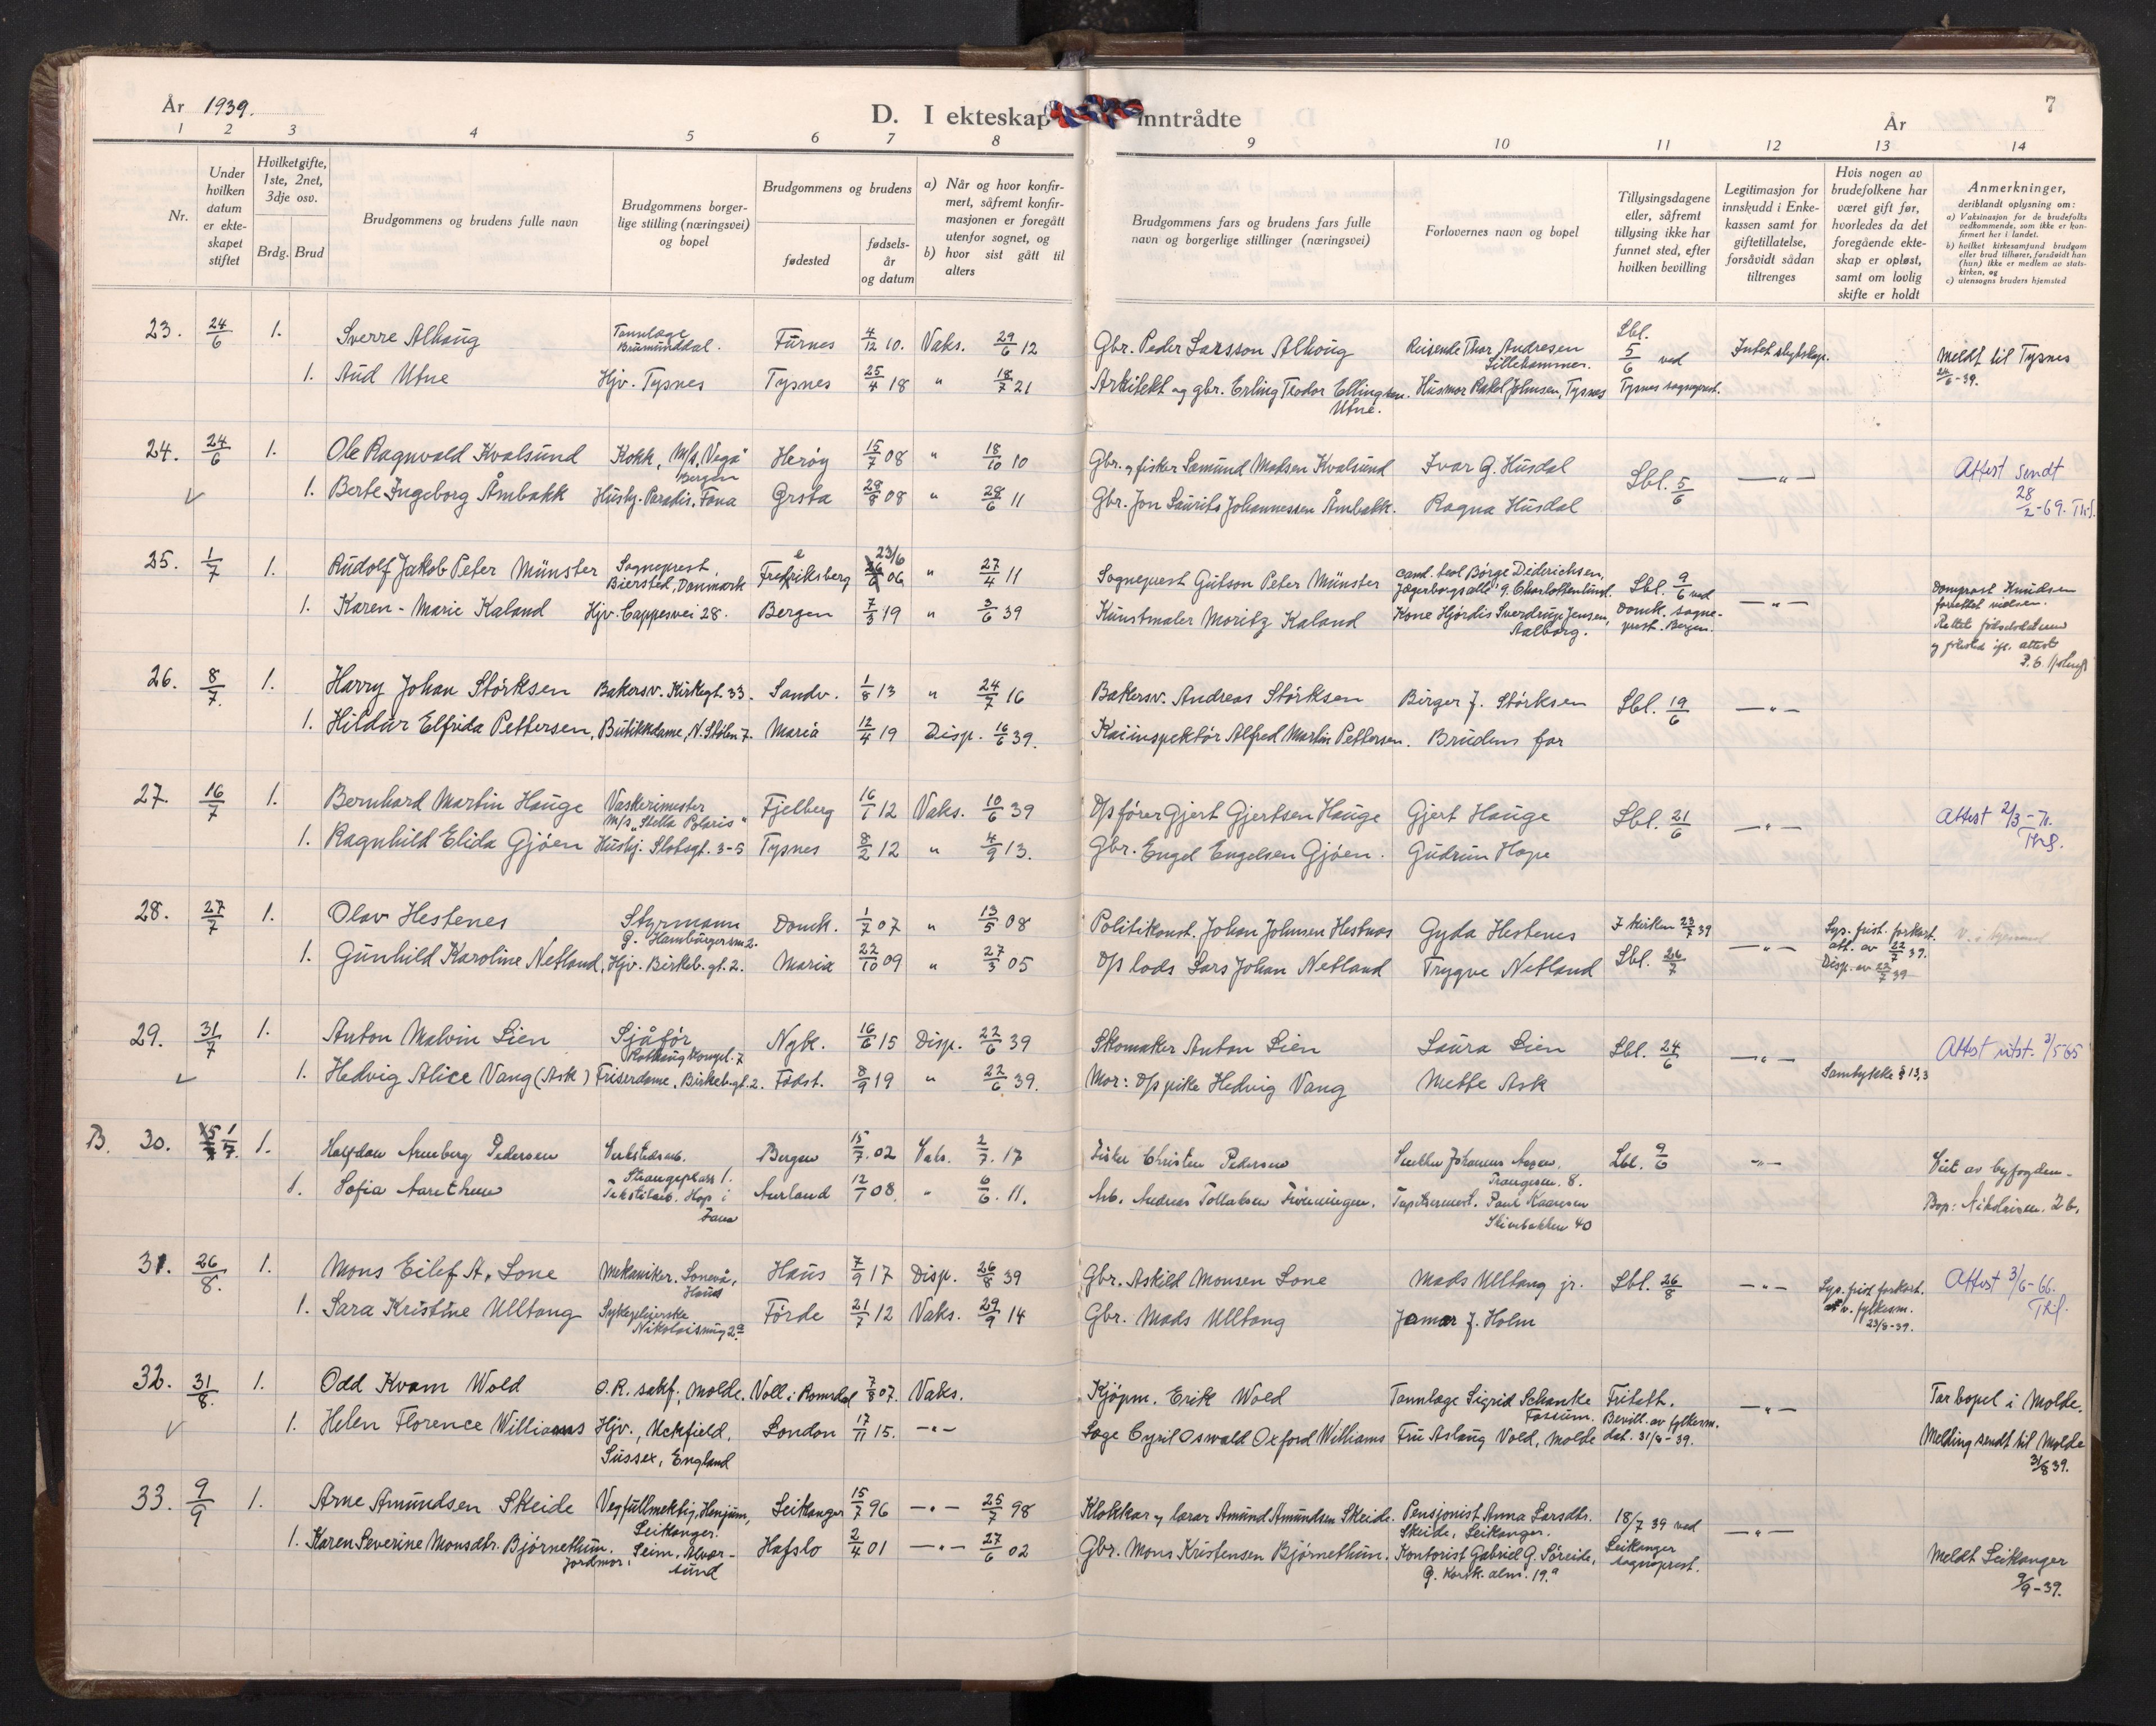 År 1939.
D. I ekteskap inntrådte
År
7
1 2 3 4 5 6 7 8 9 10 11 12 13 14
Nr.
Under hvilken datum er ekteskapet stiftet
Hvilket gifte, 1ste, 2net, 3dje osv.
Brdg. Brud
Brudgommens og brudens fulle navn
Brudgommens borgerlige stilling (næringsvei) og bopel
Brudgommens og brudens
fødested
fødselsår og datum
a) Når og hvor konfirmert, såfremt konfirmasjonen er foregått utenfor sognet, og
b) hvor sist gått til alters
Brudgommens fars og brudens fars fulle navn og borgerlige stillinger (næringsvei)
Forlovernes navn og bopel
Tillysingsdagene eller, såfremt tillysing ikke har funnet sted, efter hvilken bevilling
Legitimasjon for innskudd i Enkekassen samt for giftetillatelse, forsåvidt sådan tiltrenges
Hvis nogen av brudefolkene har været gift før, hvorledes da det foregående ekteskap er opløst, samt om lovlig skifte er holdt
Anmerkninger, deriblandt oplysning om:
a) Vaksinasjon for de brudefolks vedkommende, som ikke er konfirmert her i landet.
b) hvilket kirkesamfund brudgom eller brud tilhører, forsåvidt han (hun) ikke er medlem av statskirken, og
c) utensogns bruders hjemsted
23. 24/6 1. Sverre Alhaug Tannlæge Brumunddal. Furnes 4/12 10. Vaks. 29/6 12 Gbr. Peder Larsson Alhoug Reisende Thor Andresen Lillehammer. Lbl. 5/6 ved Intet slektskap. Meldt til Tysnes
1. Aud Utne Hjv. Tysnes Tysnes 25/4 18 " 18/7 21 Arkitekt og gbr. Erling Teodor Ellingsen Utne. Husmor Rakel Johnsen, Tysnes Tysnes sogneprest. 24/6-39.
24. 24/6 1. Ole Ragnvald Kvalsund Kokk, M/s "Vega" Bergen Herøy 15/7 08 " 18/10 10 Gbr. og fisker Samund Madsen Kvalsund Ivar G. Husdal Lbl. 5/6 —"— Attest sendt
1. Berte Ingeborg Åmbakk Hushj. Paradis, Fana Grsta 28/8 08 " 28/6 11 Gbr. Jon Laurits Johannessen Åmbakk. Ragna Husdal 28/2-69.
25. 1/7 1. Rudolf Jakob Peter Münster Sogneprest, Biersted, Danmark Fredriksberg 23/6 06 " 27/4 11 Sogneprest Gutson Peter Münster cand. teol Börge Diderichsen, Jægerborgsallé 9. Charlottenlund. Lbl. 9/6 ved —"— Domprost Knudsen forrettet vielsen.
1. Karen-Marie Kaland Hjv. Cappesvei 28. Bergen 7/3 19 " 3/6 39 Kunstmaler Moritz Kaland Kone Hjördis Sverdrup Jensen, Aalborg. Domk. sogneprest. Bergen. Rettet fødselsdatum
26. 8/7. 1. Harry Johan Störksen Bakersv. Kirkegt. 33. Sandv. 1/8 13 " 24/7 16 Bakersv. Andreas Störksen Birger J. Störksen Lbl. 19/6 —"—
1. Hildur Elfrida Pettersen, Butikkdame, N. Stölen 7. Maria 12/4 19 Disp. 16/6 39. Kaiinspektör Alfred Martin Pettersen. Brudens far
27. 16/7 1. Bernhard Martin Hauge Vaskerimester M/s "Stella Polaris" Fjelberg 16/1 12 Vaks. 10/6 39 D/s fører Gjert Gjertsen Hauge Gjert Hauge Lbl. 21/6 —"— Attest 2/3-70.
1. Ragnhild Elida Gjöen Hushj. Slotsgt. 3-5 Tysnes 8/2 12 " 4/9 13. Gbr. Engel Engelsen Gjöen. Gudrun Hope
28. 27/7 1. Olav Hestenes Styrmann G. Hamburgersm 2. Domk. 1/7 07 " 13/5 08 Politikonst. Johan Johnsen Hestnes Gyda Hestenes I kirken 23/7 39 Lys. frist. forkort. att. av 22/7 39.
1. Gunhild Karoline Netland, Hjv. Birkeb. gt. 2. Maria 22/10 09 " 27/3 05 D/s lods Lars Johan Netland Trygve Netland Lbl. 26/7 —"— Disp. av 22/7 39
29. 31/7 1. Anton Malvin Lien Sjåför Nyk. 16/6 15 Disp. 22/6 39 Skomaker Anton Lien Laura Lien Lbl. 24/6 —"— Attest utst. 3/5 65
1. Hedvig Alice Vang (Ask) Friserdame, Birkeb. gt. 2. Födst. 8/9 19 " 22/6 39. Mor: D/s pike Hedvig Vang Mette Ask Samtykke § 13,3
B. 30. 1/7. 1. Halfdan Arneberg Pedersen Verkstedsarb. Strangeplass 1. Bergen 15/7. 02 Vaks. 2/7. 17 Fisker Christen Pedersen Lbl. 9/6 -"- Viet av byfogden.
1. Sofia Aarethun Tekstilarb. Hop i Fana Aurland 12/1 08. " 6/6. 11. Arb. Andreas Tollaksen Tapetsermest. Paul Kaarsen Skivebakken 40 Bop: Nikolaism. 26.
31. 26/8. 1. Mons Eilef A. Lone Mekaniker. Lonevå, Haus Haus 7/9 17 Disp. 26/8 39 Gbr. Askild Monsen Lone Mads Ulltang jr. Lbl. 26/8 —"— Lys. frist forkort. av. fylkesm. 23/8-39. Attest 3/6-66.
1. Sara Kristine Ulltang Sykepleierske Nikolaismug 2a Förde 21/7 12 Vaks. 29/9 14 Gbr. Mads Ulltang Jamar J. Holm
32. 31/8. 1. Odd Kvam Wold O.R. sakf. Molde. Voll i Romsdal 7/8 07. Vaks. Kjöpm. Erik Wold Tannlæge Sigrid Schanke Fossum. Fritatt. —"— Tar bopel i Molde.
1. Helen Florence Williams Hjv., Uckfield, Sussex, England London 17/11 15. —"— Læge Cyril Oswald Oxford Williams Fru Aslaug Vold, Molde Bevill. av fylkesm. dat. 31/8-39. Melding sendt til Molde 31/8 39.
33. 9/9 1. Arne Amundsen Skeide Vegfullmektig, Henjum, Leikanger. Leikanger 15/7 96 —"— 25/7 98 Klokkar og lærar Amund Amundsen Skeide. Pensjonist Anna Larsdtr. Skeide, Leikanger. 18/7 39 ved —"—
1. Karen Severine Monsdtr. Björnethun. Jordmor, Seim, Alversund Hafslo 2/4 01 —"— 27/6 02 Gbr. Mons Kristensen Björnethun. Kontorist Gabriel G. Söreide, Leikanger sogneprest. Meldt Leikanger 9/9-39.